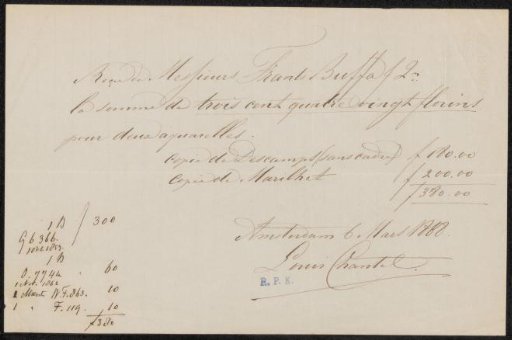 Reçu de Messieurs Frans Buffa f 2n
la somme de trois cent quatre vingt florins
pour deux aquarelles.
copie de Descamps (sans cadre) f 180.00
copie de Marilhat f 200.00
f 380.00
Amsterdam 6 Mars
Louis Chantal
R.P.K.
1 B 300
G 6366.
1 B
O. 7742 60
1 Mant W.F. 863. 10
1 " F. 119. 10
f 380